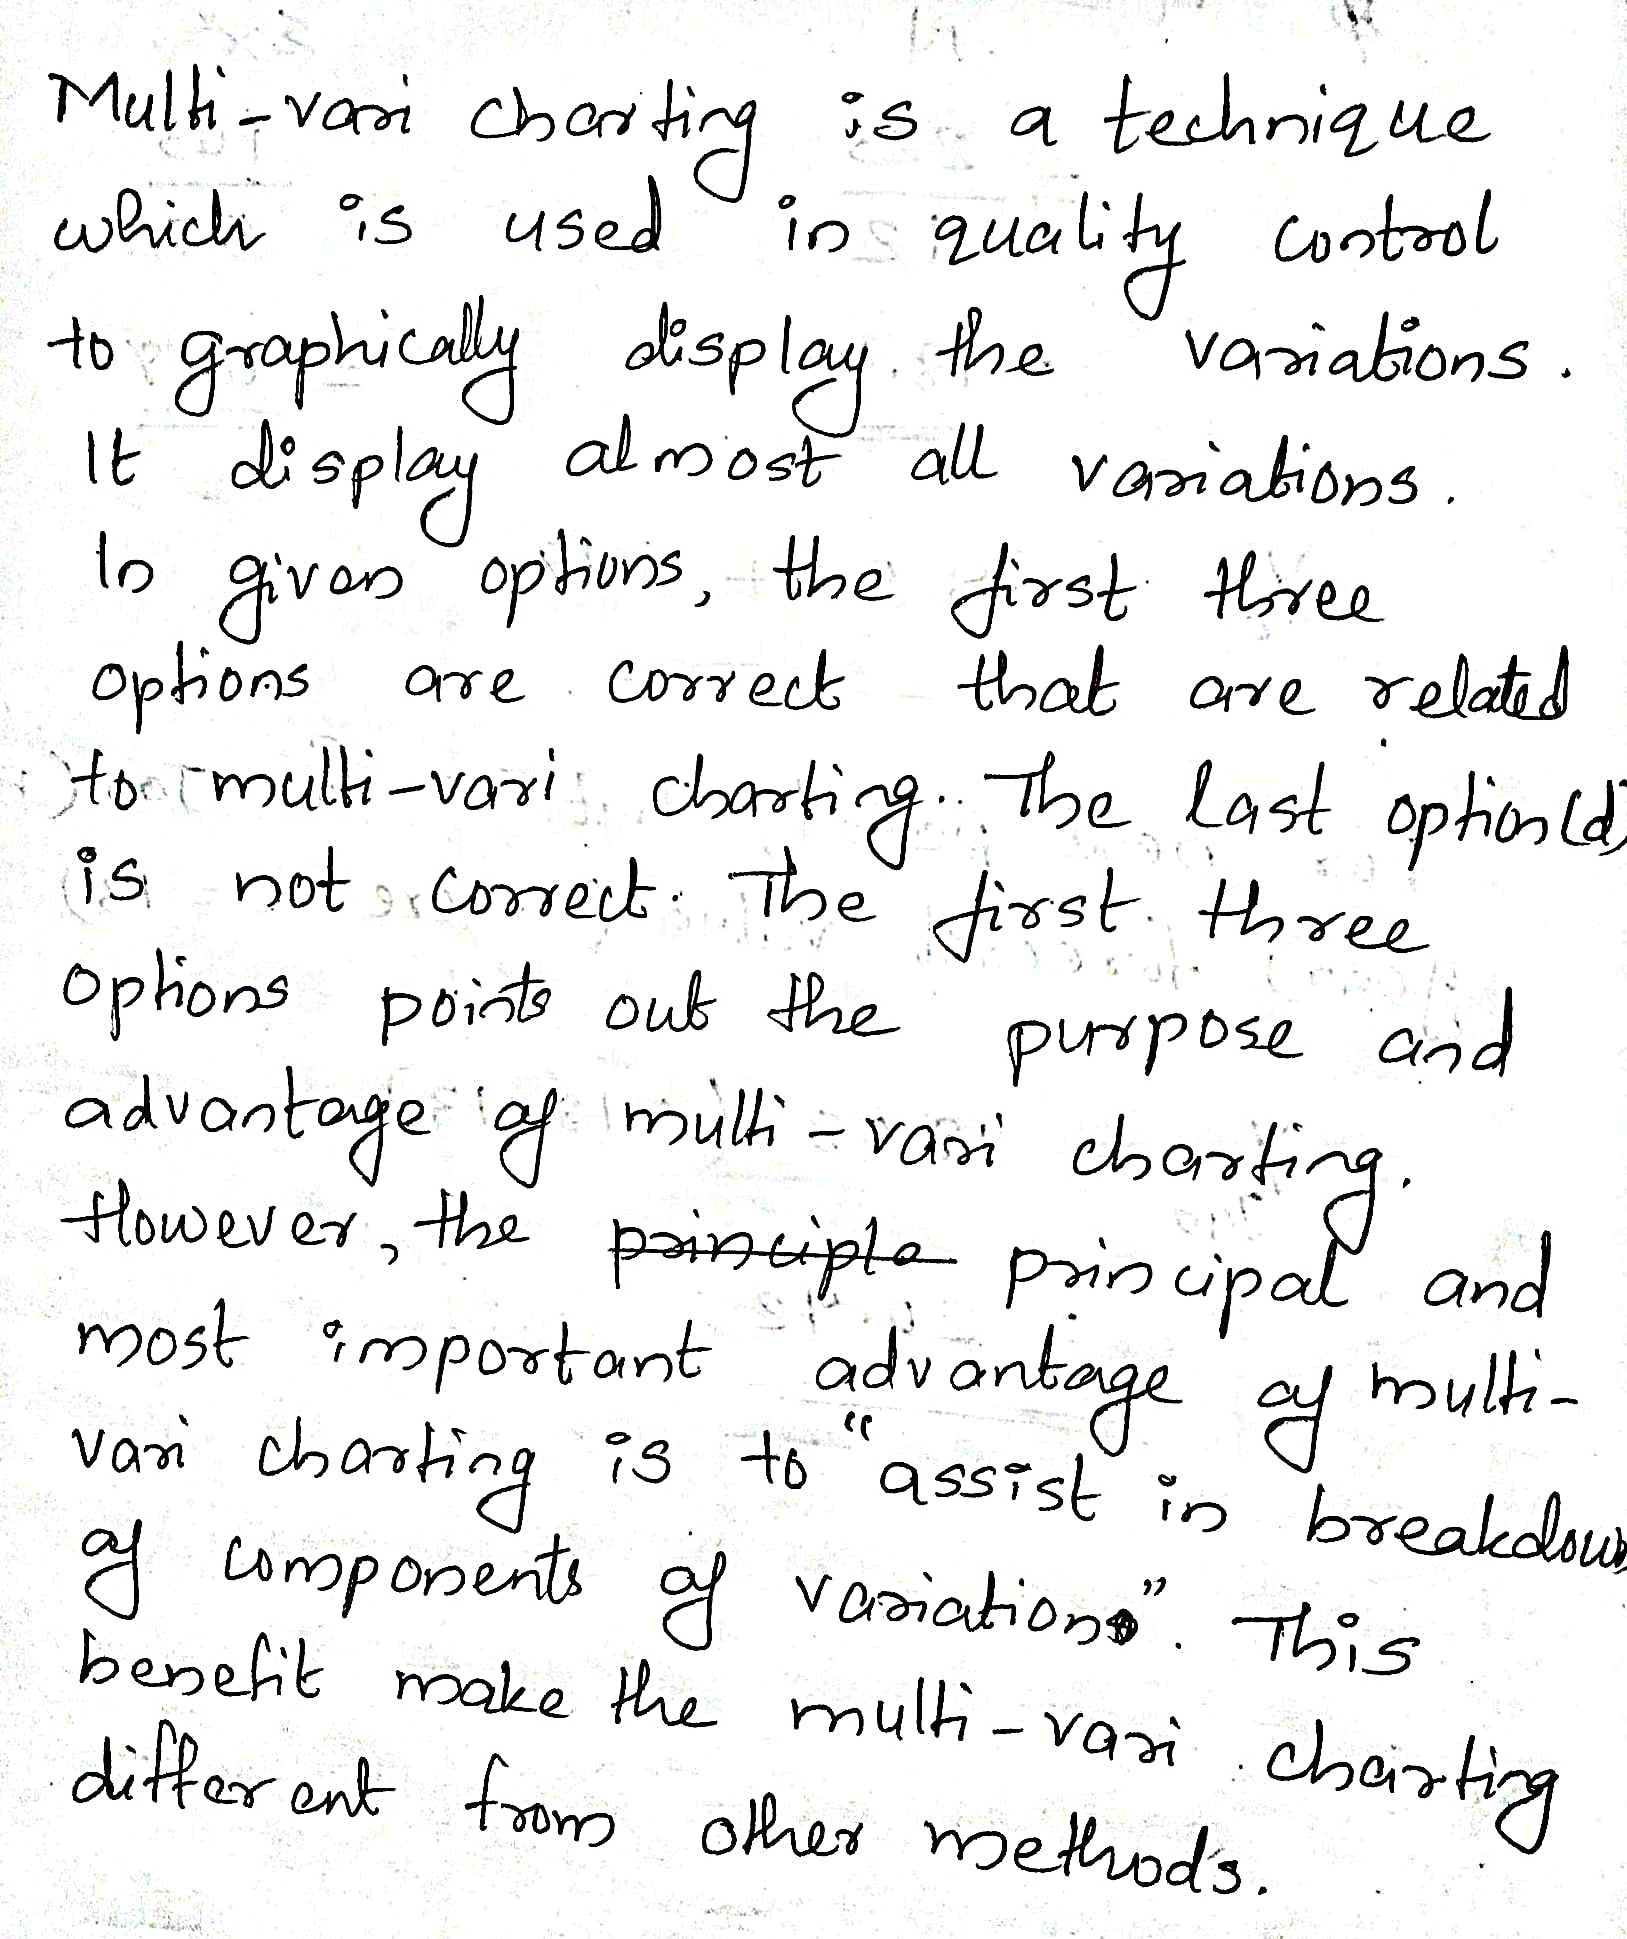 Multi-vari charting is a technique
which is used in quality control
to graphically display the variations.
It display almost all variations.
In given options, the first three
options are correct that are related
to multi-vari charting. The last option (d)
is not correct. The first three
options points out the purpose and
advantage of multi-vari charting.
However, the principle principal and
most important advantage of multi-
vari charting is to "assist in breakdown
of components of variations". This
benefit make the multi-vari charting
different from other methods.